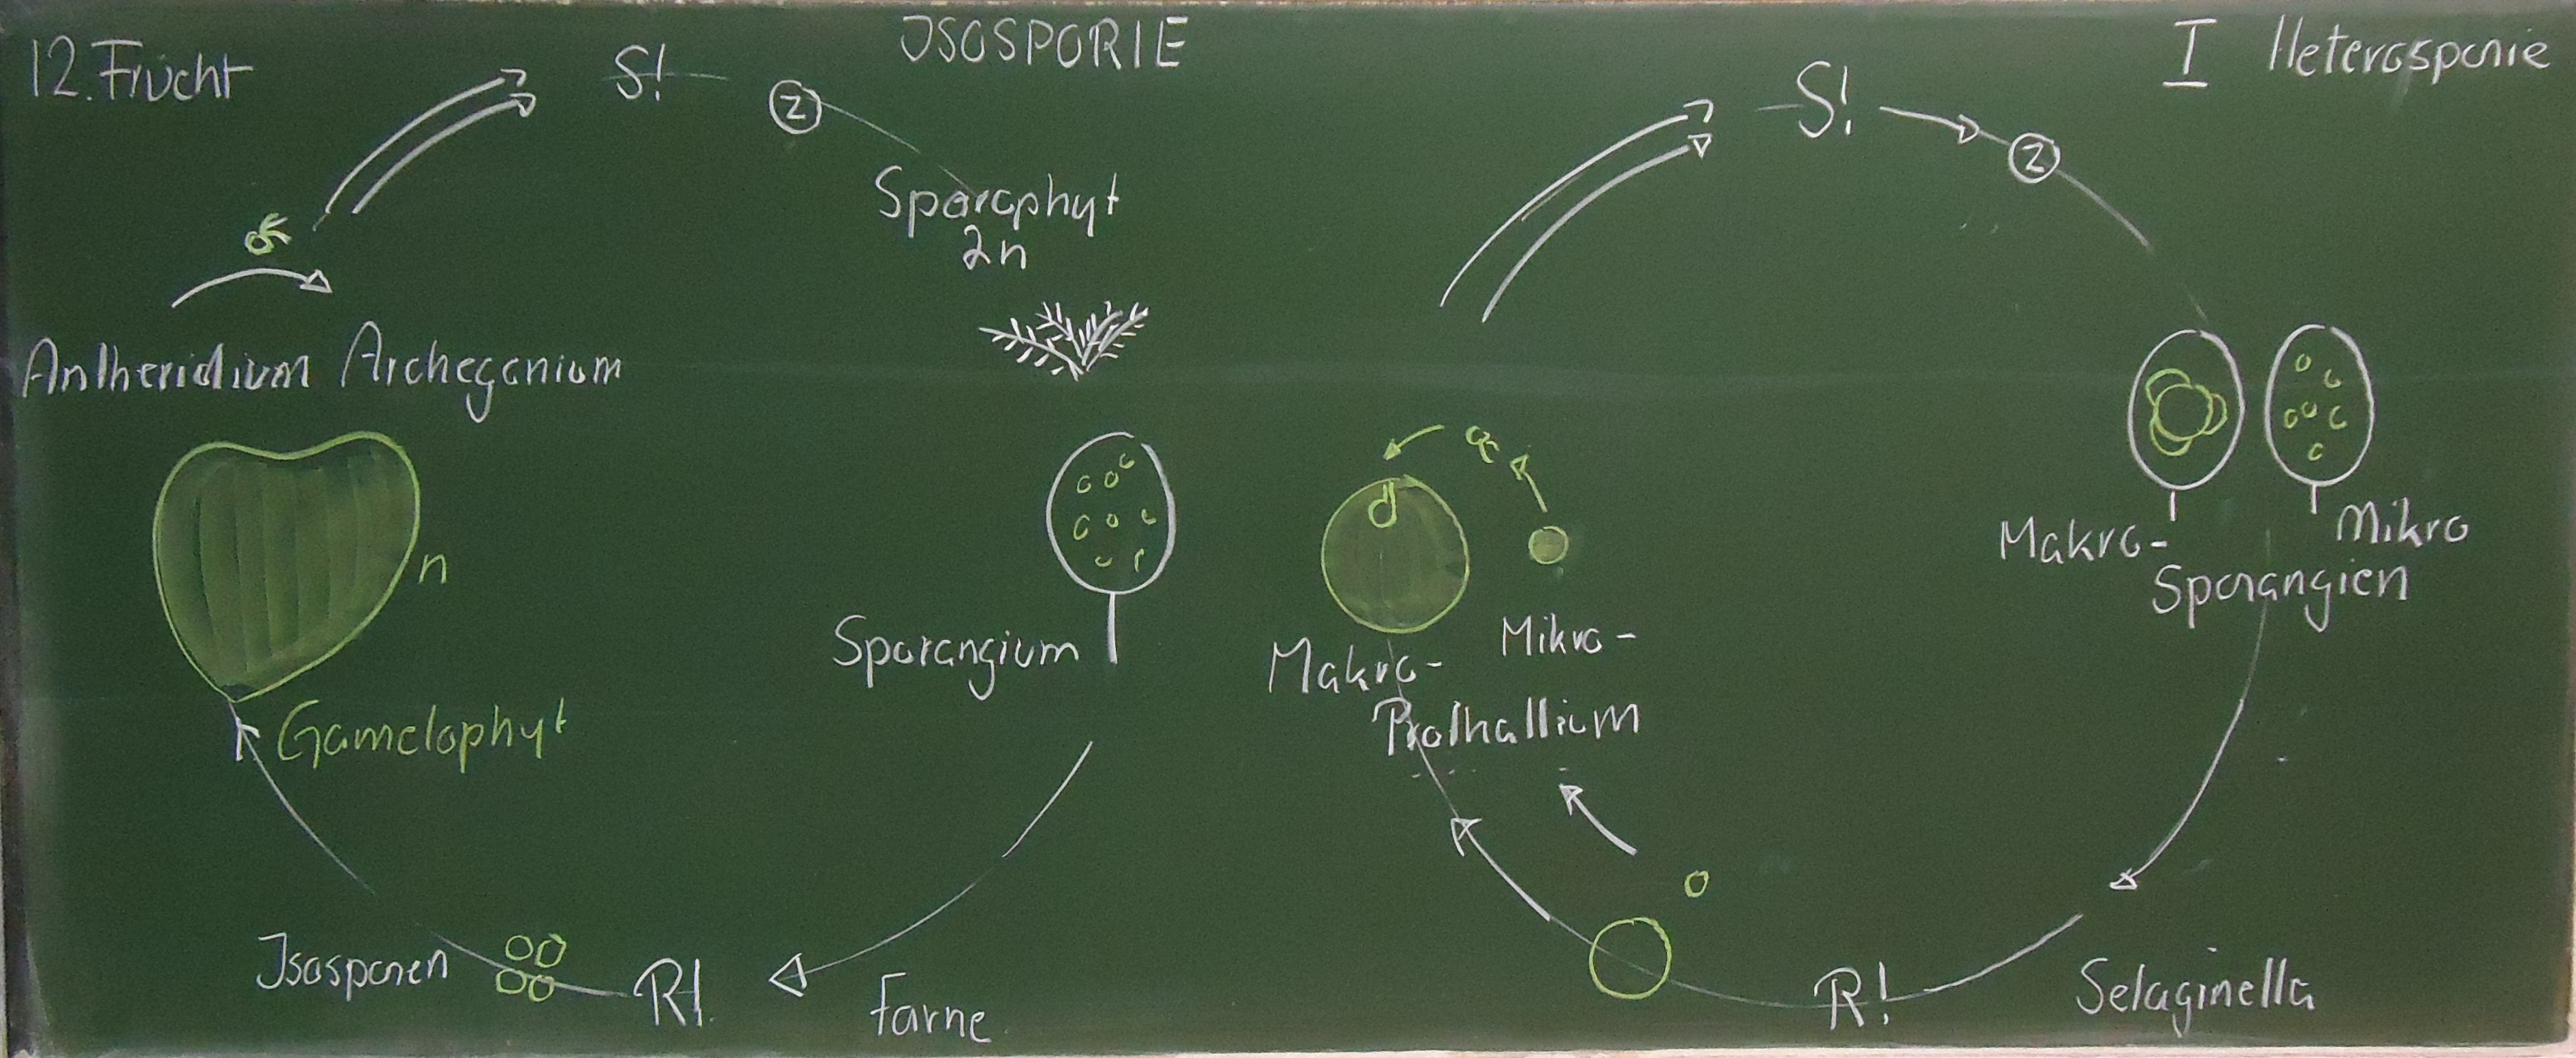 12. Frucht
ISOSPORIE
S!
Z
Sporophyt
2n
Antheridium Archegonium
n
Gametophyt
Sporangium
Isosporen
R!
Farne
I Heterosporie
S!
Z
Makro-
Mikro
Sporangien
Makro-
Mikro-
Prothallium
R!
Selaginella